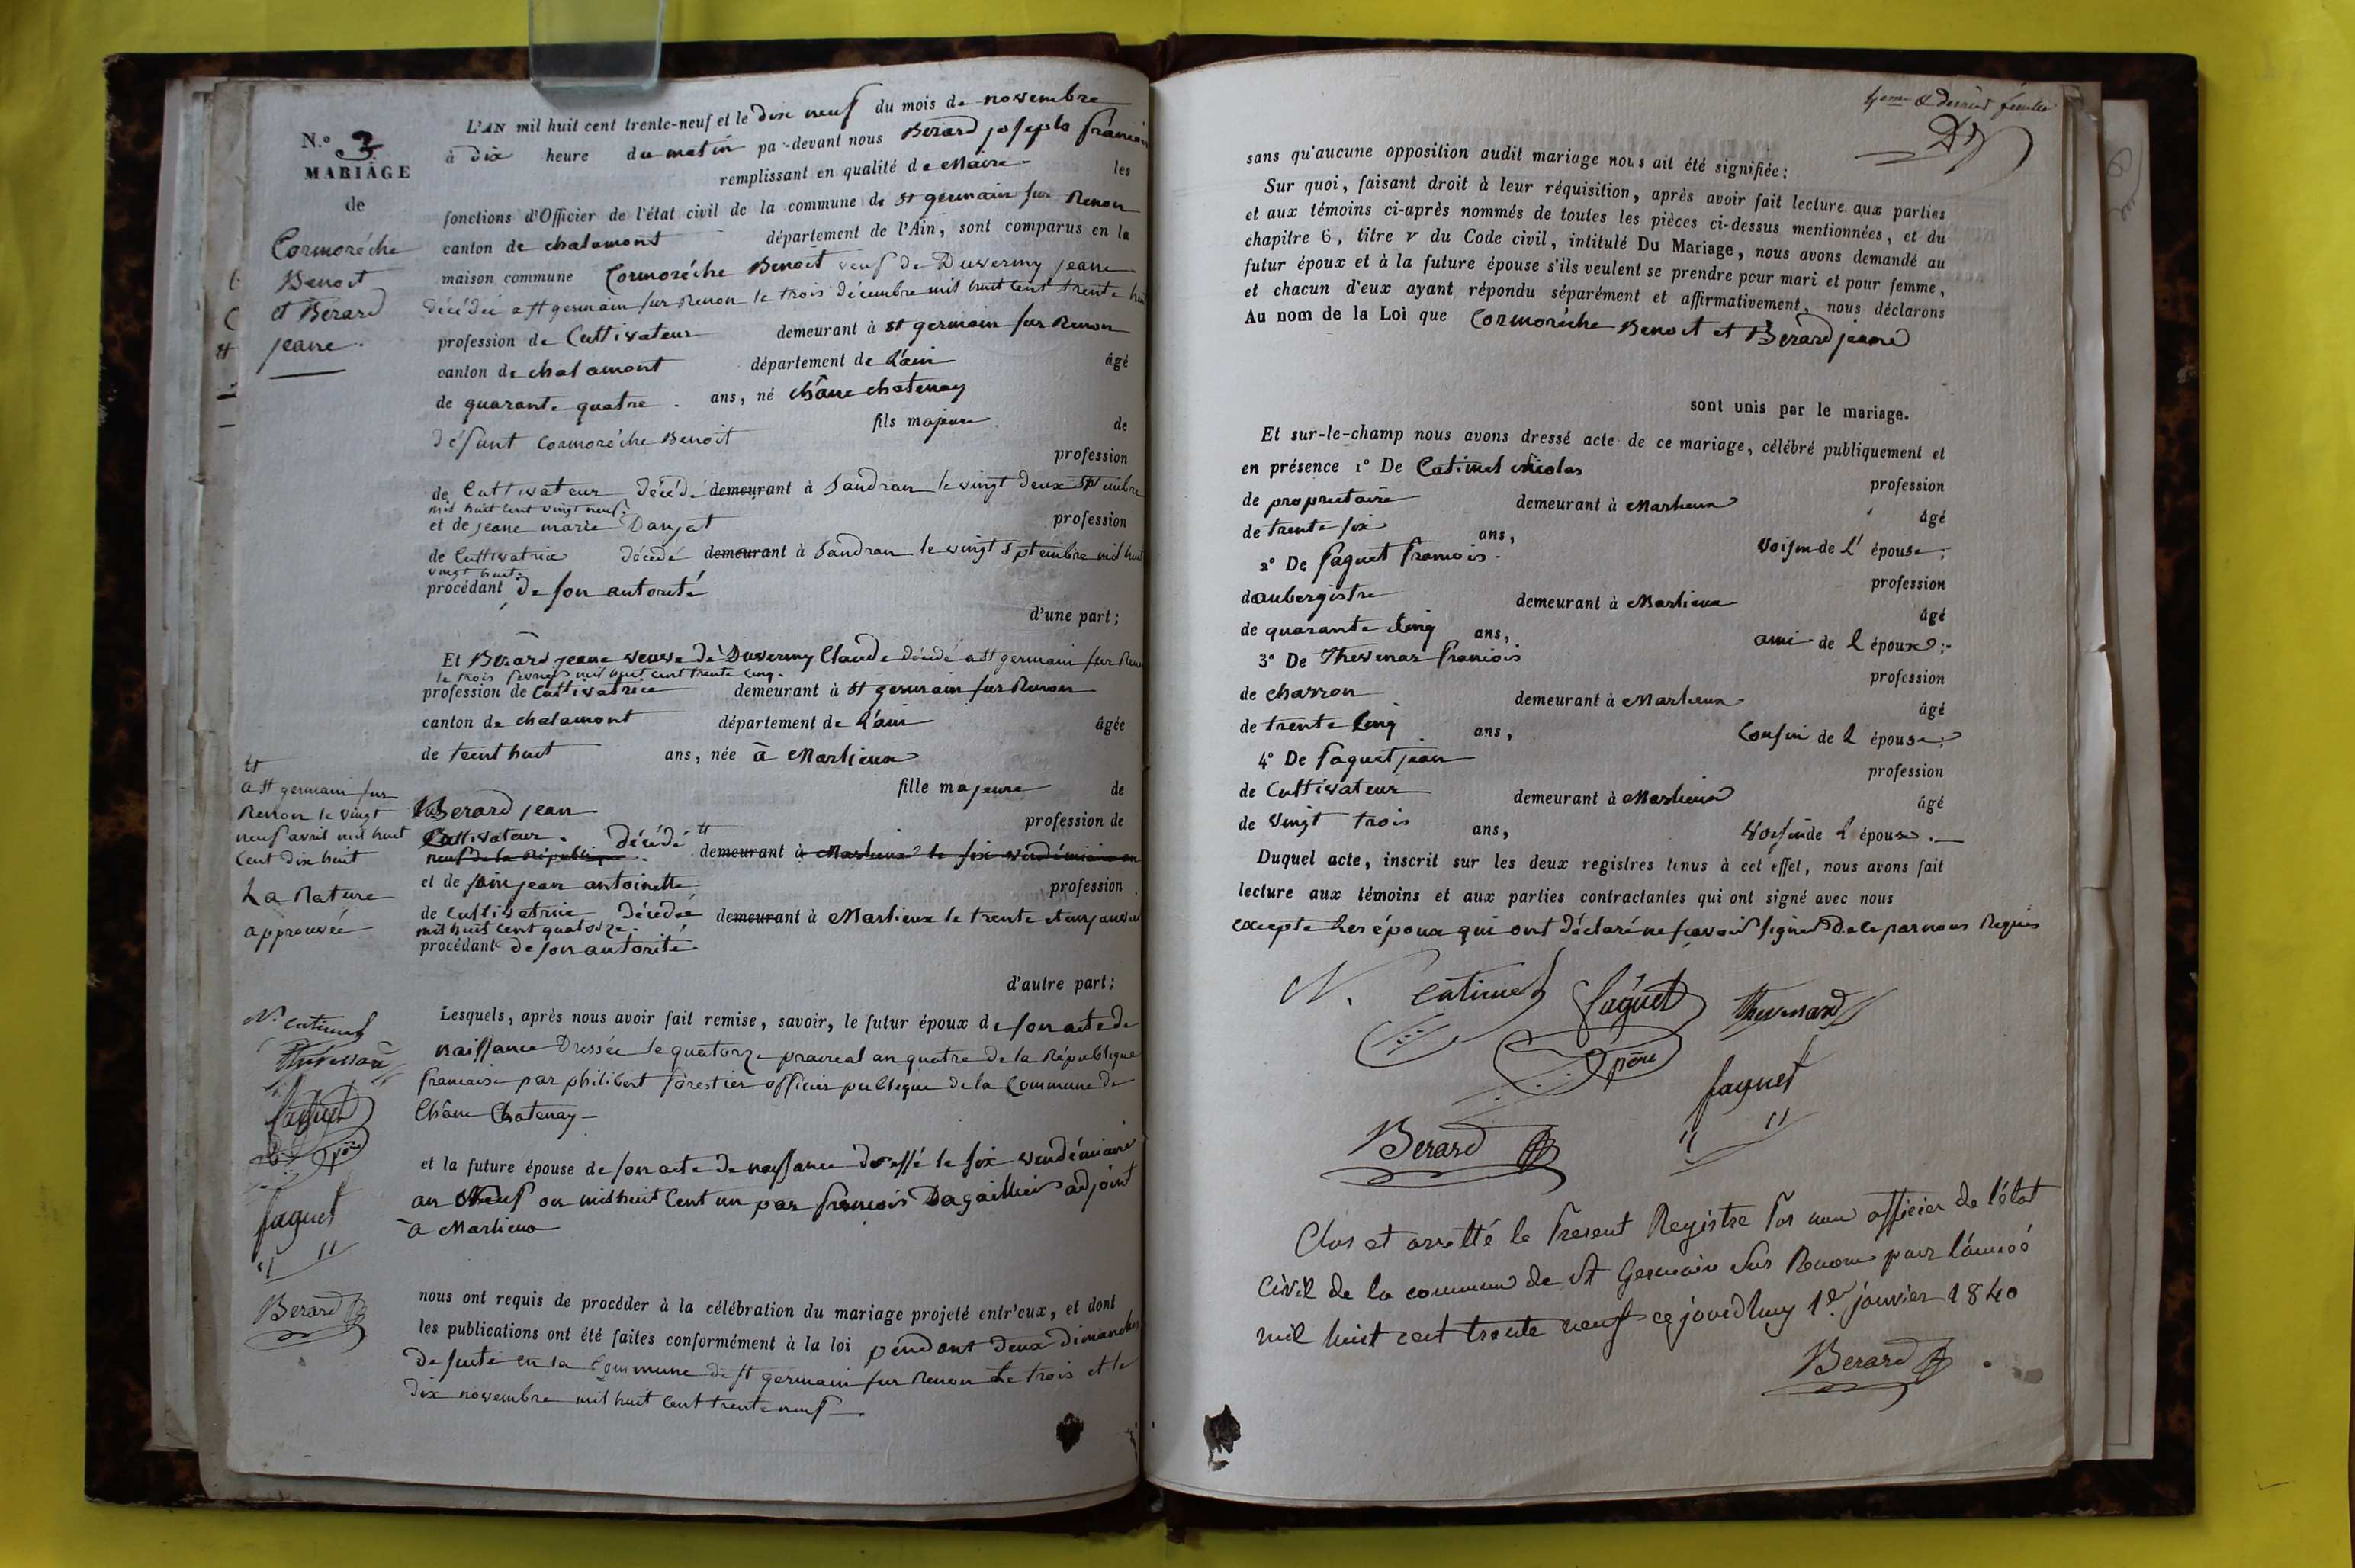 N.° 3
MARIAGE
de
Cormoréche
Benoit
et Bérard
jeane.
L'AN mil huit cent trente-neuf et le dix neuf du mois de novembre
à dix heure du matin par-devant nous Bérard joseph francois
remplissant en qualité de Maire les
fonctions d'Officier de l'état civil de la commune de st germain sur Renon
canton de chalamont département de l'Ain, sont comparus en la
maison commune Cormoréche Benoit veuf de Duvermy jeane
décédée a st germain sur Renon le trois décembre mil huit cent trente huit
profession de Cultivateur demeurant à st germain sur Renon
canton de chalamont département de l'ain âgé
de quarante quatre ans, né châne chatenay
fils majeur de
défunt Cormoréche Benoit
profession
de Cultivateur décédé demeurant à Sandran le vingt deux septembre
mil huit cent vingt neuf.
et de jeane marie Danjat profession
de Cultivatrice décédé demeurant à Sandran le vingt septembre mil huit
vingt huit.
procédant de son autorité
d'une part;
Et Bérard jeane veuve de Duvermy Claude décédé a st germain sur Renon
le trois fevrier mil huit cent trente cinq.
profession de Cultivatrice demeurant à st germain sur Renon
canton de chalamont département de l'ain âgée
de trent huit ans, née à Marlieux
fille majeure de
Berard jean
profession de
Cultivateur. décédé demeurant à Marlieux le six vendémiaire an
neuf de la République.
et de jean antoinette profession
de Cultivatrice décédée demeurant à Marlieux le trente et un janvier
mil huit cent quatorze.
procédant de son autorité
d'autre part;
a st germain sur
Renon le vingt
neuf avril mil huit
cent dix huit
La Rature
approuvée
N. catimel
Thévenard
faguet
père
faguet
Berard
Lesquels, après nous avoir fait remise, savoir, le futur époux de son acte de
naissance Dressée le quatorze prairéal an quatre de la République
francaise par philibert forestier officier publique de la Commune de
Châne Chatenay
et la future épouse de son acte de naissance dressé le six vendémiaire
an Neuf ou mil huit cent un par francois Dagaillier adjoint
à Marlieux
nous ont requis de procéder à la célébration du mariage projeté entr'eux, et dont
les publications ont été faites conformément à la loi pendant deux dimanches
de suite en la Commune de st germain sur Renon Le trois et le
dix novembre mil huit cent trente neuf
4eme & dernier feuillet
sans qu'aucune opposition audit mariage nous ait été signifiée;
Sur quoi, faisant droit à leur réquisition, après avoir fait lecture aux parties
et aux témoins ci-après nommés de toutes les pièces ci-dessus mentionnées, et du
chapitre 6, titre v du Code civil, intitulé Du Mariage, nous avons demandé au
futur époux et à la future épouse s'ils veulent se prendre pour mari et pour femme,
et chacun d'eux ayant répondu séparément et affirmativement, nous déclarons
Au nom de la Loi que Cormoréche Benoit et Bérard jeane
sont unis par le mariage.
Et sur-le-champ nous avons dressé acte de ce mariage, célébré publiquement et
en présence 1° De Catimel Nicolas
profession
de proprietaire demeurant à Marlieux âgé
de trente six ans, voisin de L' épouse;
2° De faguet francois profession
daubergistre demeurant à Marlieux âgé
de quarante cinq ans, ami de L époux;
3° De Thevenar francois profession
de charron demeurant à Marlieux âgé
de trente cinq ans, Cousin de L épouse;
4° De faguet jean profession
de Cultivateur demeurant à Marlieux âgé
de vingt trois ans, Voisin de L épouse.
Duquel acte, inscrit sur les deux registres tenus à cet effet, nous avons fait
lecture aux témoins et aux parties contractantes qui ont signé avec nous
excepte Les époux qui ont déclaré ne scavoir signer De ce par nous Requis
N. catimel faguet Thevenard
père
faguet
Berard
Clos et arretté le Present Registre Par nous officier de l'état
Civil de la commune de St Germain Sur Renon pour l'année
mil huit cent trente neuf ce jourdhuy 1er janvier 1840
Berard